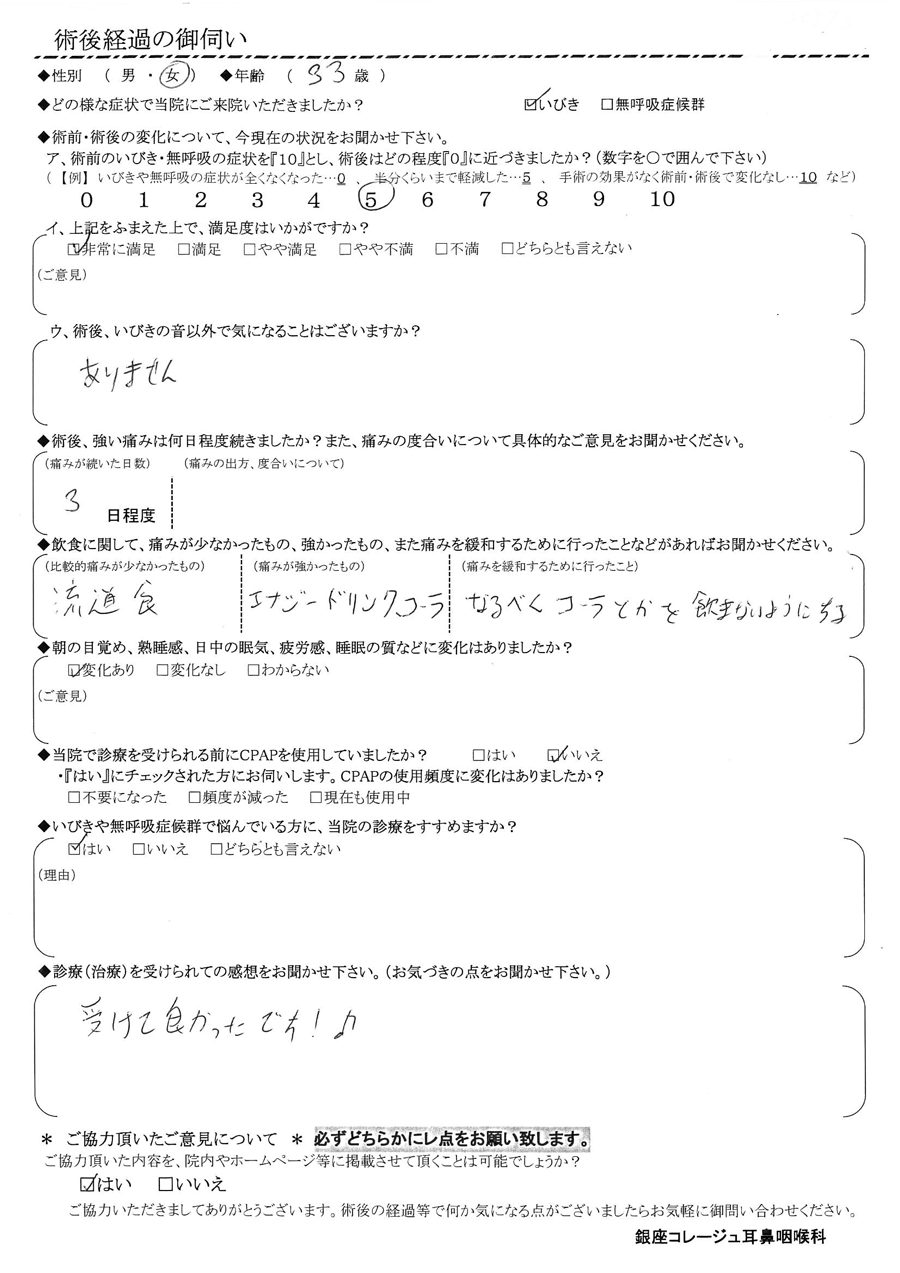 術後経過の御伺い
◆性別 ( 男 ・ 女 ) ◆年齢 ( 33 歳 )
◆どの様な症状で当院にご来院いただきましたか? ☑いびき □無呼吸症候群
◆術前・術後の変化について、今現在の状況をお聞かせ下さい。
ア、術前のいびき・無呼吸の症状を『10』とし、術後はどの程度『0』に近づきましたか?(数字を〇で囲んで下さい)
(【例】いびきや無呼吸の症状が全くなくなった…0 、 半分くらいまで軽減した…5 、 手術の効果がなく術前・術後で変化なし…10 など)
0 1 2 3 4 5 6 7 8 9 10
イ、上記をふまえた上で、満足度はいかがですか?
☑非常に満足 □満足 □やや満足 □やや不満 □不満 □どちらとも言えない
(ご意見)
ウ、術後、いびきの音以外で気になることはございますか?
ありません
◆術後、強い痛みは何日程度続きましたか?また、痛みの度合いについて具体的なご意見をお聞かせください。
(痛みが続いた日数) (痛みの出方、度合いについて)
3 日程度
◆飲食に関して、痛みが少なかったもの、強かったもの、また痛みを緩和するために行ったことなどがあればお聞かせください。
(比較的痛みが少なかったもの) (痛みが強かったもの) (痛みを緩和するために行ったこと)
流道食 エナジードリンクコーラ なるべくコーラとかを飲まないようにする
◆朝の目覚め、熟睡感、日中の眠気、疲労感、睡眠の質などに変化はありましたか?
☑変化あり □変化なし □わからない
(ご意見)
◆当院で診療を受けられる前にCPAPを使用していましたか? □はい ☑いいえ
・『はい』にチェックされた方にお伺いします。CPAPの使用頻度に変化はありましたか?
□不要になった □頻度が減った □現在も使用中
◆いびきや無呼吸症候群で悩んでいる方に、当院の診療をすすめますか?
☑はい □いいえ □どちらとも言えない
(理由)
◆診療(治療)を受けられての感想をお聞かせ下さい。(お気づきの点をお聞かせ下さい。)
受けて良かったです!♪
* ご協力頂いたご意見について * 必ずどちらかにレ点をお願い致します。
ご協力頂いた内容を、院内やホームページ等に掲載させて頂くことは可能でしょうか?
☑はい □いいえ
ご協力いただきましてありがとうございます。術後の経過等で何か気になる点がございましたらお気軽に御問い合わせください。
銀座コレージュ耳鼻咽喉科